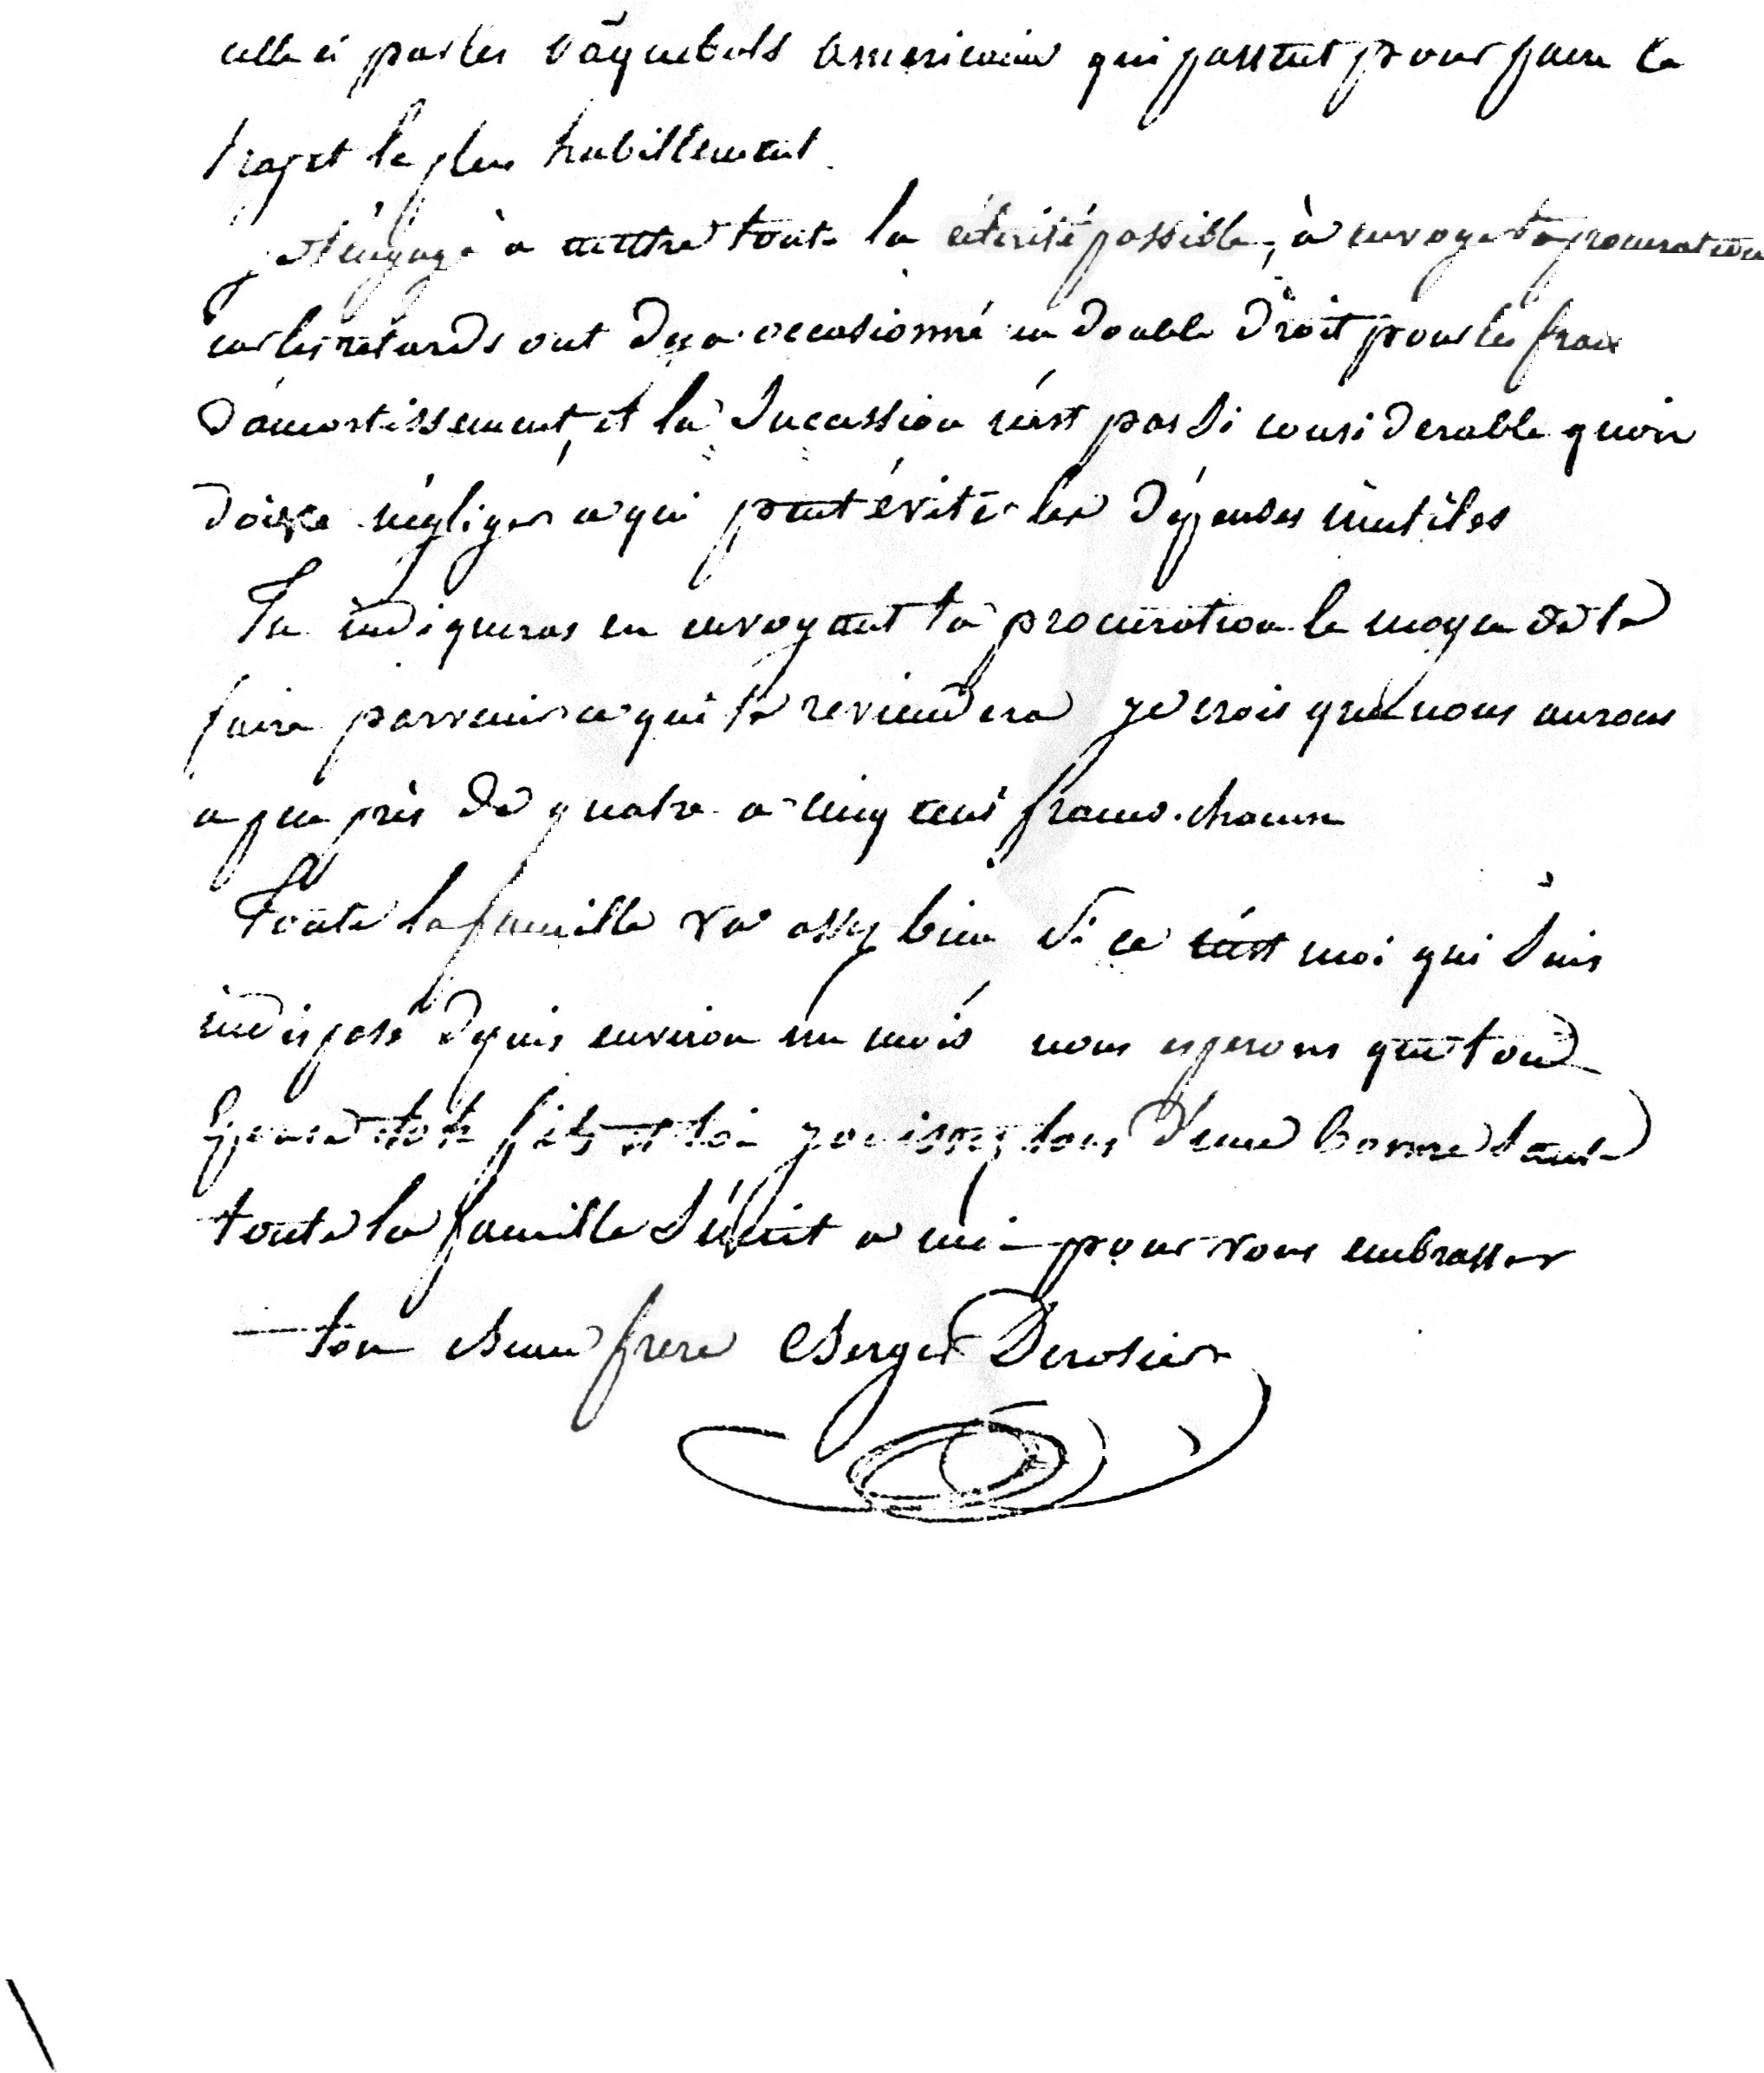 celle ci par les paquebots americain qui passent pour faire le
trajet le plus habillement
je t'engage a mettre toute la célérité possible, à envoyer ta procuration
car les retards ont deja occasionné un double droit pour les frais
d'amortissement, et la Sucession n'est pas si considerable quon
doive négliger ce qui peut éviter les dépenses inutiles
Tu indiqueras en envoyant ta procuration le moyen de te
faire parvenir ce qui te reviendera je crois que nous aurons
a peu près de quatre a cinq cens francs chacun
Toute la famille va assez bien Si ce n'est moi qui Suis
indisposé depuis environ un mois nous esperons que ton
Epouse ton fils et toi jouissez tous d'une bonne Santé
toute la famille S'unit a moi pour vous embrasser
ton Beau frere Berger Derosier